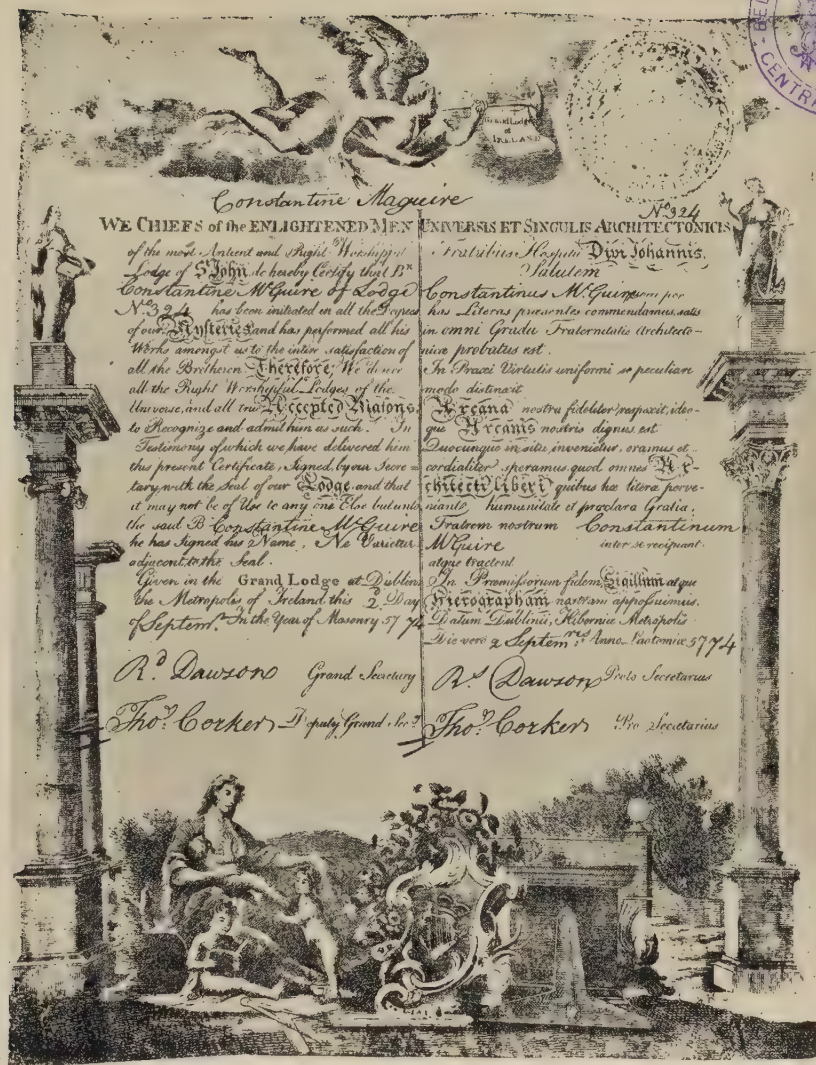 BEL
CENTR
Grand Lodge
of
IRELAND
Constantine Maguire
WE CHIEFS of the ENLIGHTENED MEN
of the most Antient and Right Worshipful
Lodge of St John, do hereby Certify that Br
Constantine McGuire of Lodge
No 324 has been initiated in all the Degrees
of our Mysteries and has performed all his
Works amongst us to the intire satisfaction of
all the Bretheren Therefore, We desire
all the Right Worshipful Lodges of the
Universe, and all true Accepted Masons,
to Recognize and admit him as such. In
Testimony of which we have delivered him
this present Certificate, Signed by our Secre-
tary, with the Seal of our Lodge, and that
it may not be of Use to any one Else but unto
the said B Constantine McGuire
he has Signed his Name, Ne Varietur
adjacent to the Seal.
Given in the Grand Lodge at Dublin
the Metropoles of Ireland this 2d Day
of Septemr In the Year of Masonry 5774
Rd Dawson Grand Secretary
Thos Corker Deputy Grand Secy
No 324
UNIVERSIS ET SINGULIS ARCHITECTONICIS
Fratribus Hospitii Divi Johannis,
Salutem
Constantinus McGuire quem per
has Literas presentes commendamus, satis
in omni Gradu Fraternitatis Architecto-
nicæ probatus est.
In Praxi Virtutis uniformi se peculiari
modo distinxit
Arcana nostra fideliter respexit, ideo-
que Arcanis nostris dignus est
Quocunque in situ invenietur, oramus et
cordialiter speramus quod omnes Ar-
chitecti liberi quibus hæ literæ perve-
niant, humanitate et præclara Gratia,
Fratrem nostrum Constantinum
McGuire inter se recipiant
atque tractent
In Præmissorum fidem, Sigillum atque
Hierographam nostram apposuimus.
Datum Dublinii, Hiberniæ Metropolis
Die vero 2 Septemres Anno Laotomiæ 5774
Rd Dawson Proto Secretarius
Thos Corker Pro Secretarius